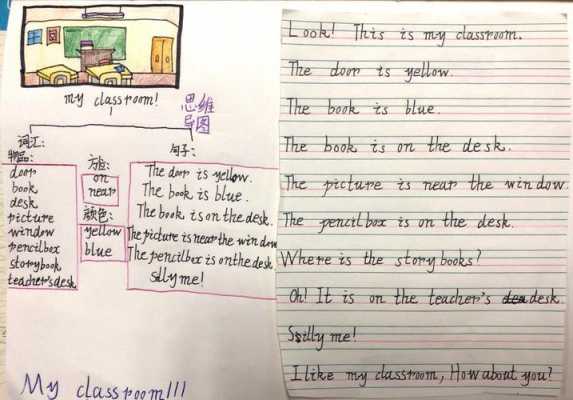 my classroom!
思维
导图
词汇:
物品:
door
book
desk
picture
window
pencilbox
storybook
teacher's desk
方位:
on
near
颜色:
yellow
blue
句子:
The door is yellow.
The book is blue.
The book is on the desk.
The picture is near the window
The pencilbox is on the desk.
Silly me!
My classroom!!!
Look! This is my classroom.
The door is yellow.
The book is blue.
The book is on the desk.
The picture is near the window.
The pencilbox is on the desk.
Where is the story books?
Oh! It is on the teacher's desk.
Ssilly me!
I like my classroom, How about you?